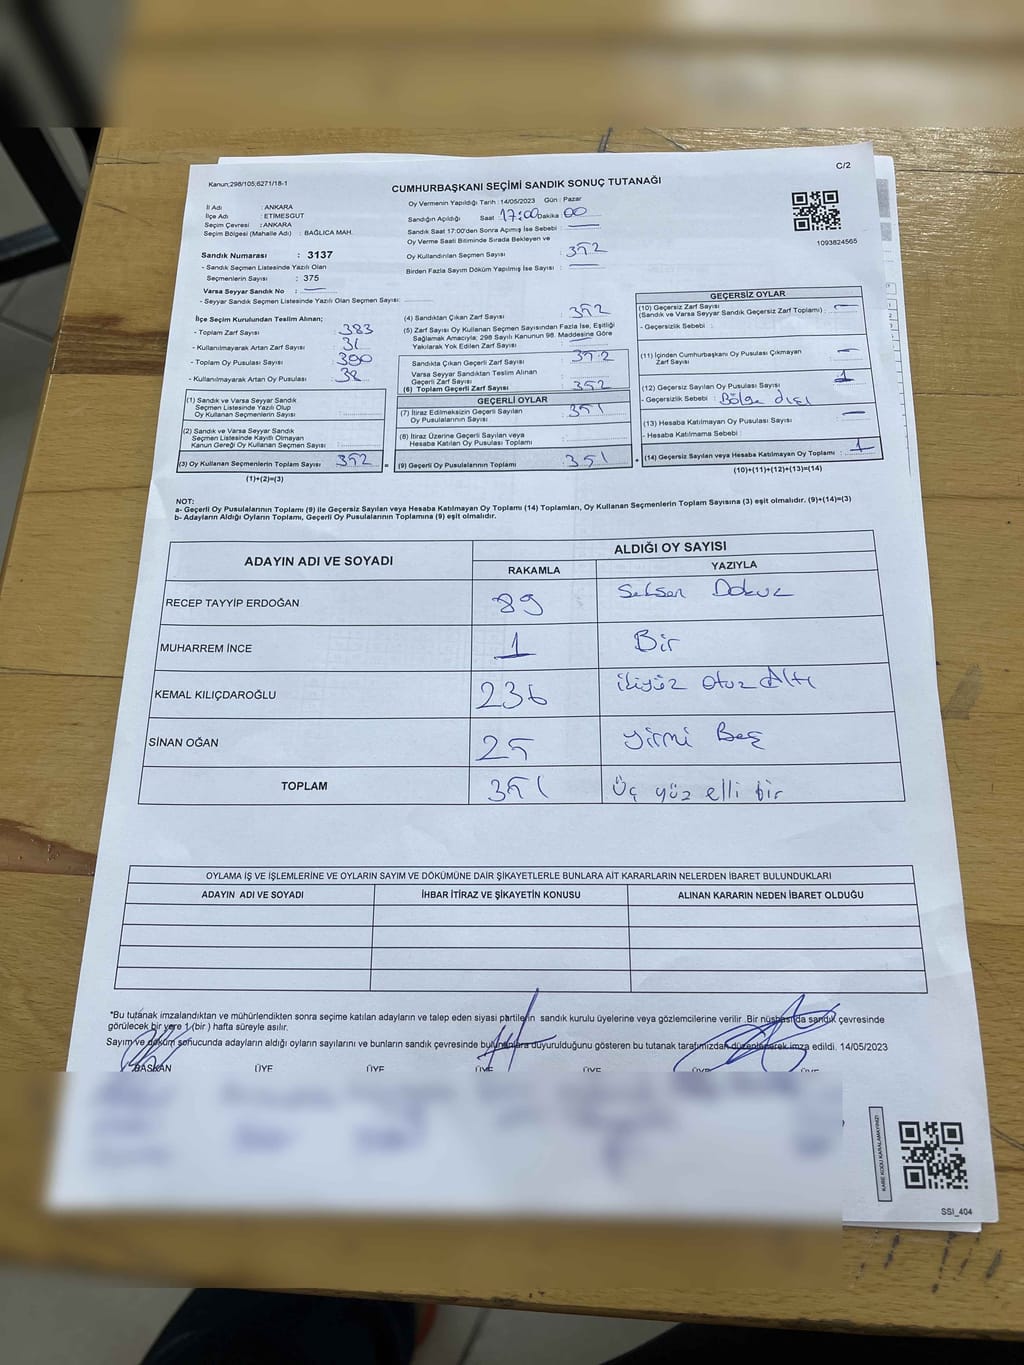 C/2
Kanun;298/105;6271/18-1
CUMHURBAŞKANI SEÇİMİ SANDIK SONUÇ TUTANAĞI
İl Adı : ANKARA
İlçe Adı : ETİMESGUT
Seçim Çevresi : ANKARA
Seçim Bölgesi (Mahalle Adı) : BAĞLICA MAH.
Sandık Numarası : 3137
- Sandık Seçmen Listesinde Yazılı Olan
Seçmenlerin Sayısı : 375
Varsa Seyyar Sandık No : —
- Seyyar Sandık Seçmen Listesinde Yazılı Olan Seçmen Sayısı:
Oy Vermenin Yapıldığı Tarih : 14/05/2023 Gün : Pazar
Sandığın Açıldığı Saat 17:00 Dakika 00
Sandık Saat 17:00'den Sonra Açımış İse Sebebi : —
Oy Verme Saati Bitiminde Sırada Bekleyen ve
Oy Kullandırılan Seçmen Sayısı : 352
Birden Fazla Sayım Döküm Yapılmış İse Sayısı : —
1093824565
İlçe Seçim Kurulundan Teslim Alınan;
- Toplam Zarf Sayısı : 383
- Kullanılmayarak Artan Zarf Sayısı : 31
- Toplam Oy Pusulası Sayısı : 390
- Kullanılmayarak Artan Oy Pusulası : 38
(1) Sandık ve Varsa Seyyar Sandık
Seçmen Listesinde Yazılı Olup
Oy Kullanan Seçmenlerin Sayısı :
(2) Sandık ve Varsa Seyyar Sandık
Seçmen Listesinde Kayıtlı Olmayan
Kanun Gereği Oy Kullanan Seçmen Sayısı :
(3) Oy Kullanan Seçmenlerin Toplam Sayısı : 352 =
(1)+(2)=(3)
(4) Sandıktan Çıkan Zarf Sayısı : 352
(5) Zarf Sayısı Oy Kullanan Seçmen Sayısından Fazla İse, Eşitliği
Sağlamak Amacıyla; 298 Sayılı Kanunun 98. Maddesine Göre
Yakılarak Yok Edilen Zarf Sayısı : —
Sandıkta Çıkan Geçerli Zarf Sayısı : 352
Varsa Seyyar Sandıktan Teslim Alınan
Geçerli Zarf Sayısı :
(6) Toplam Geçerli Zarf Sayısı : 352
GEÇERLİ OYLAR
(7) İtiraz Edilmeksizin Geçerli Sayılan
Oy Pusulalarının Sayısı : 351
(8) İtiraz Üzerine Geçerli Sayılan veya
Hesaba Katılan Oy Pusulası Toplamı :
(9) Geçerli Oy Pusulalarının Toplamı : 351 +
GEÇERSİZ OYLAR
(10) Geçersiz Zarf Sayısı
(Sandık ve Varsa Seyyar Sandık Geçersiz Zarf Toplamı) : —
- Geçersizlik Sebebi :
(11) İçinden Cumhurbaşkanı Oy Pusulası Çıkmayan
Zarf Sayısı : —
(12) Geçersiz Sayılan Oy Pusulası Sayısı : 1
- Geçersizlik Sebebi : Bölge dışı
(13) Hesaba Katılmayan Oy Pusulası Sayısı : —
- Hesaba Katılmama Sebebi :
(14) Geçersiz Sayılan veya Hesaba Katılmayan Oy Toplamı : 1
(10)+(11)+(12)+(13)=(14)
NOT:
a- Geçerli Oy Pusulalarının Toplamı (9) ile Geçersiz Sayılan veya Hesaba Katılmayan Oy Toplamı (14) Toplamları, Oy Kullanan Seçmenlerin Toplam Sayısına (3) eşit olmalıdır. (9)+(14)=(3)
b- Adayların Aldığı Oyların Toplamı, Geçerli Oy Pusulalarının Toplamına (9) eşit olmalıdır.
ADAYIN ADI VE SOYADI
ALDIĞI OY SAYISI
RAKAMLA YAZIYLA
RECEP TAYYİP ERDOĞAN 89 Seksen Dokuz
MUHARREM İNCE 1 Bir
KEMAL KILIÇDAROĞLU 236 İkiyüz otuz Altı
SİNAN OĞAN 25 Yirmi Beş
TOPLAM 351 Üç yüz elli bir
OYLAMA İŞ VE İŞLEMLERİNE VE OYLARIN SAYIM VE DÖKÜMÜNE DAİR ŞİKAYETLERLE BUNLARA AİT KARARLARIN NELERDEN İBARET BULUNDUKLARI
ADAYIN ADI VE SOYADI İHBAR İTİRAZ VE ŞİKAYETİN KONUSU ALINAN KARARIN NEDEN İBARET OLDUĞU
*Bu tutanak imzalandıktan ve mühürlendikten sonra seçime katılan adayların ve talep eden siyasi partilerin sandık kurulu üyelerine veya gözlemcilerine verilir .Bir nüshası da sandık çevresinde
görülecek bir yere 1 (bir ) hafta süreyle asılır.
Sayım ve döküm sonucunda adayların aldığı oyların sayılarını ve bunların sandık çevresinde bulunanlara duyurulduğunu gösteren bu tutanak tarafımızdan düzenlenerek imza edildi. 14/05/2023
BAŞKAN ÜYE ÜYE ÜYE ÜYE ÜYE ÜYE
KARE KODU KARALAMAYINIZ!
SSI_404